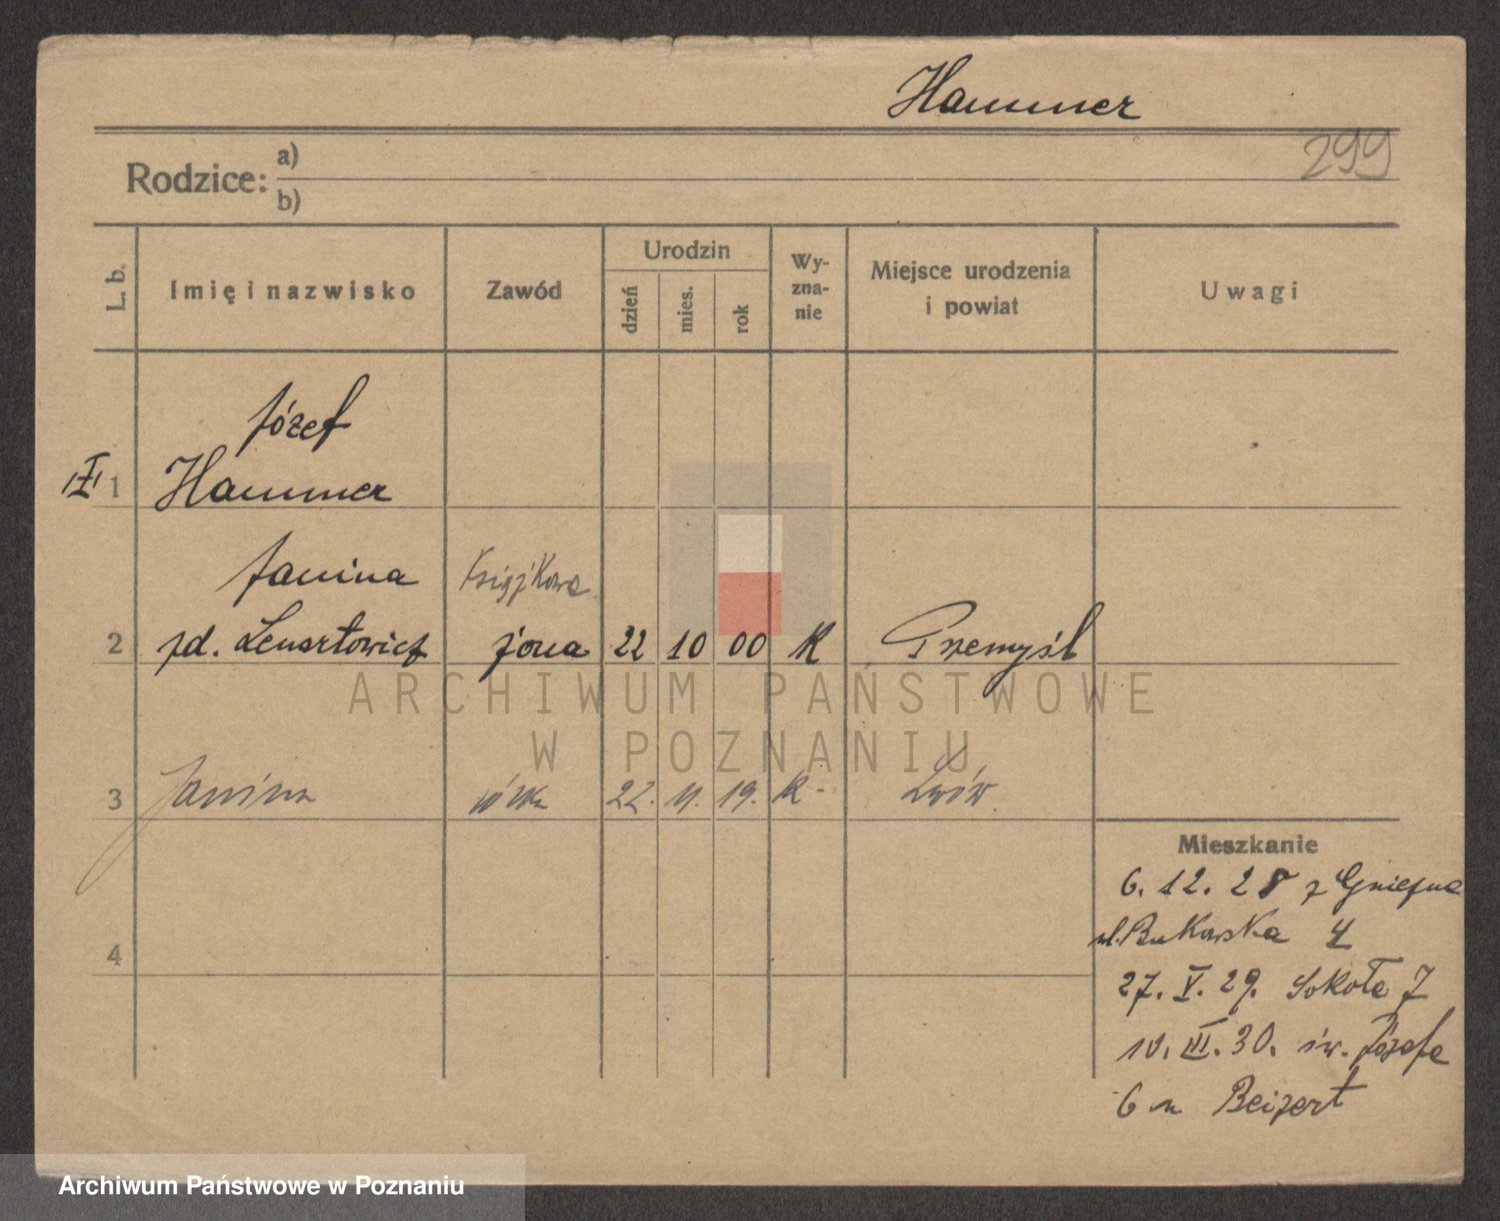 Hammer
299
Rodzice: a)
b)
L. b.
Imię i nazwisko
Zawód
Urodzin
dzień
mies.
rok
Wy-
zna-
nie
Miejsce urodzenia
i powiat
Uwagi
Józef
1 Hammer
Janina
2 zd. żona 22 10 00 K Przemyśl
3 Janina córka 22. 11. 19. K - Lwów
4
Mieszkanie
6. 12. 28 z Gniezna
ul. Bukowska 4
27. V. 29. Sokoła 7
10. III. 30. św. Józefa
6 u Beizert
ARCHIWUM PAŃSTWOWE
W POZNANIU
Archiwum Państwowe w Poznaniu